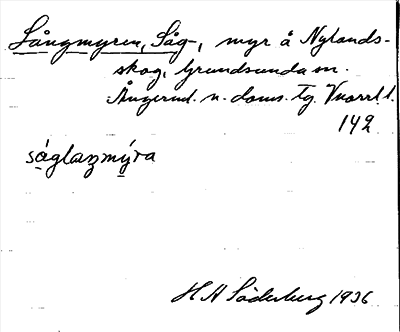 Långmyren, Såg-, myr å Nylands-
skog, Grundsunda sn.
Ångerml. n. doms. Tg. Vnorrl. l.
142
såglaŋmýra
H A Söderberg 1936